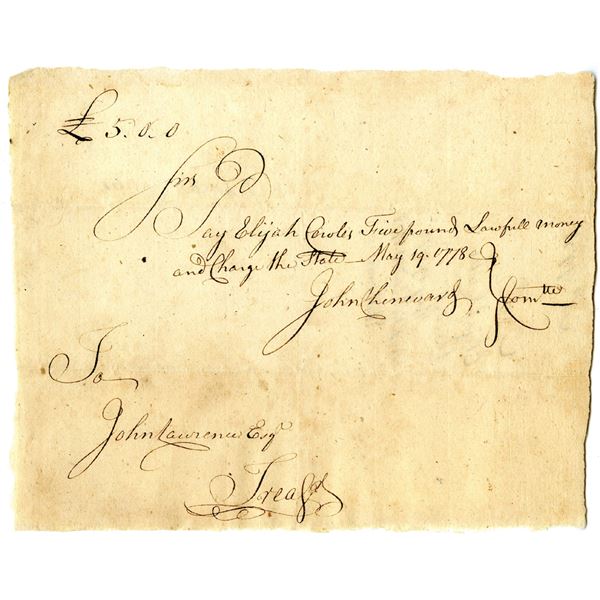 £ 5.0.0
Sir
Pay Elijah Cowles Five pounds Lawfull money
and Charge the State May 19. 1778
John Chenward } Comtte
To
John Lawrence Esqr
Treasr